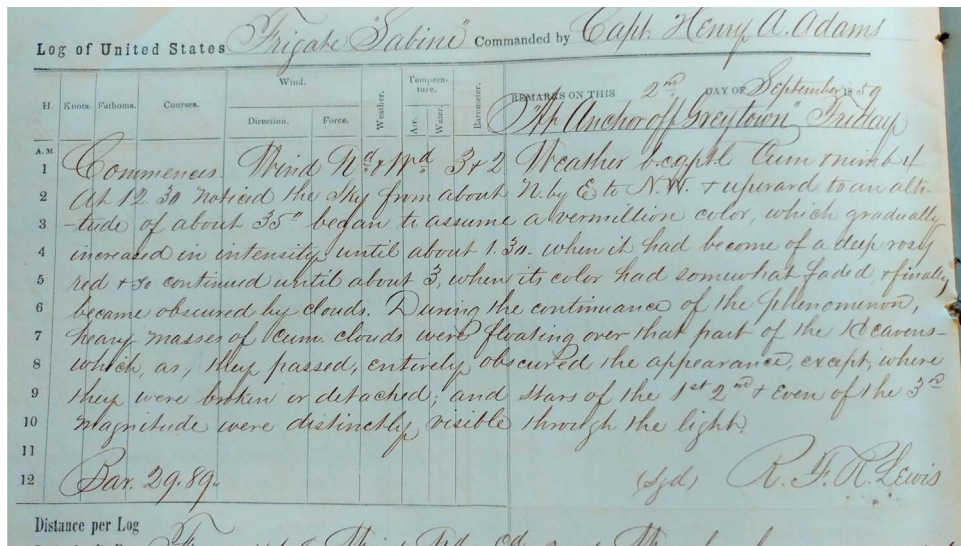 Log of United States Frigate "Sabine" Commanded by Capt. Henry A. Adams
H. Knots. Fathoms. Courses. Wind. Direction. Force. Weather. Tempera-ture. Air. Water. Barometer. REMARKS ON THIS 2nd DAY OF September 1859
"At Anchor off Greytown" Friday
A.M.
1 Commences. Wind Nd & Wd 3 & 2 Weather b.c.q.p.t.l. Cum & nimb 4
2 At 12.30 noticed the sky from about N. by E to N.W. & upward to an alti-
3 -tude of about 35° began to assume a vermillion color, which gradually
4 increased in intensity until about 1.30. when it had become of a deep rosy
5 red & so continued until about 3, when its color had somewhat faded, & finally
6 became obscured by clouds. During the continuance of the phenomenon,
7 heavy masses of Cum. clouds were floating over that part of the Heavens-
8 which, as, they passed, entirely obscured the appearance, except, where
9 they were broken or detached; and stars of the 1st 2nd & even of the 3rd
10 magnitude were distinctly, visible through the light.
11
12 Bar. 29.89. (Sgd) R. F. R. Lewis
Distance per Log